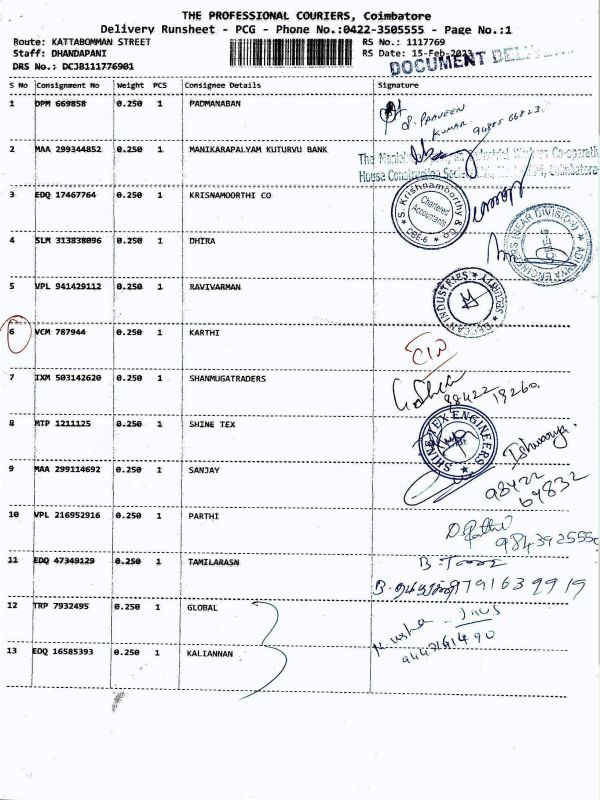 THE PROFESSIONAL COURIERS, Coimbatore
Delivery Runsheet - PCG - Phone No.:0422-3505555 - Page No.:1
Route: KATTABOMMAN STREET RS No.: 1117769
Staff: DHANDAPANI RS Date: 15-Feb-2023
DRS No.: DCJB111776901 DOCUMENT
S No Consignment No Weight PCS Consignee Details Signature
1 DPM 669858 0.250 1 PADMANABAN
S. PRAVEEN KUMAR
2 MAA 299344852 0.250 1 MANIKARAPALYAM KUTURVU BANK
Co-operative
House Construction Coimbatore
3 EDQ 17467764 0.250 1 KRISNAMOORTHI CO
S. Krishnamoorthy & Co
Chartered Accountants
CBE-6
4 SLM 313838096 0.250 1 DHIRA
ENGINEERS (GEAR DIVISION)
5 VPL 941429112 0.250 1 RAVIVARMAN
INDUSTRIES SECURITY
6 VCM 787944 0.250 1 KARTHI
7 IXM 503142620 0.250 1 SHANMUGATRADERS
98422 19260
8 MTP 1211125 0.250 1 SHINE TEX
SHINE TEX ENGINEERS
Ishwarya.
9 MAA 299114692 0.250 1 SANJAY
98422 64832
10 VPL 216952916 0.250 1 PARTHI
984392555
11 EDQ 47349129 0.250 1 TAMILARASN
9791639919
12 TRP 7932495 0.250 1 GLOBAL
9447361490
13 EDQ 16585393 0.250 1 KALIANNAN